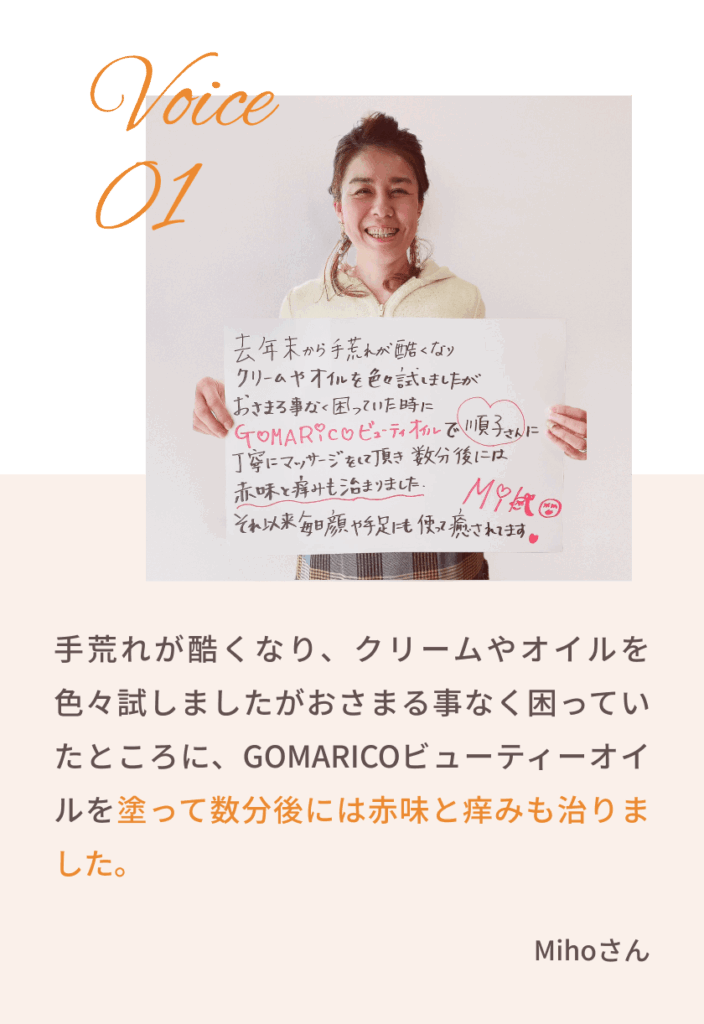 Voice
01
去年末から手荒れが酷くなり
クリームやオイルを色々試しましたが
おさまる事なく困っていた時に
GOMARICOビューティオイルで順子さんに
丁寧にマッサージをして頂き数分後には
赤味と痒みも治まりました.
Miho
それ以来毎日顔や手足にも使って癒されてます
手荒れが酷くなり、クリームやオイルを
色々試しましたがおさまる事なく困ってい
たところに、GOMARICOビューティーオイ
ルを塗って数分後には赤味と痒みも治りま
した。
Mihoさん